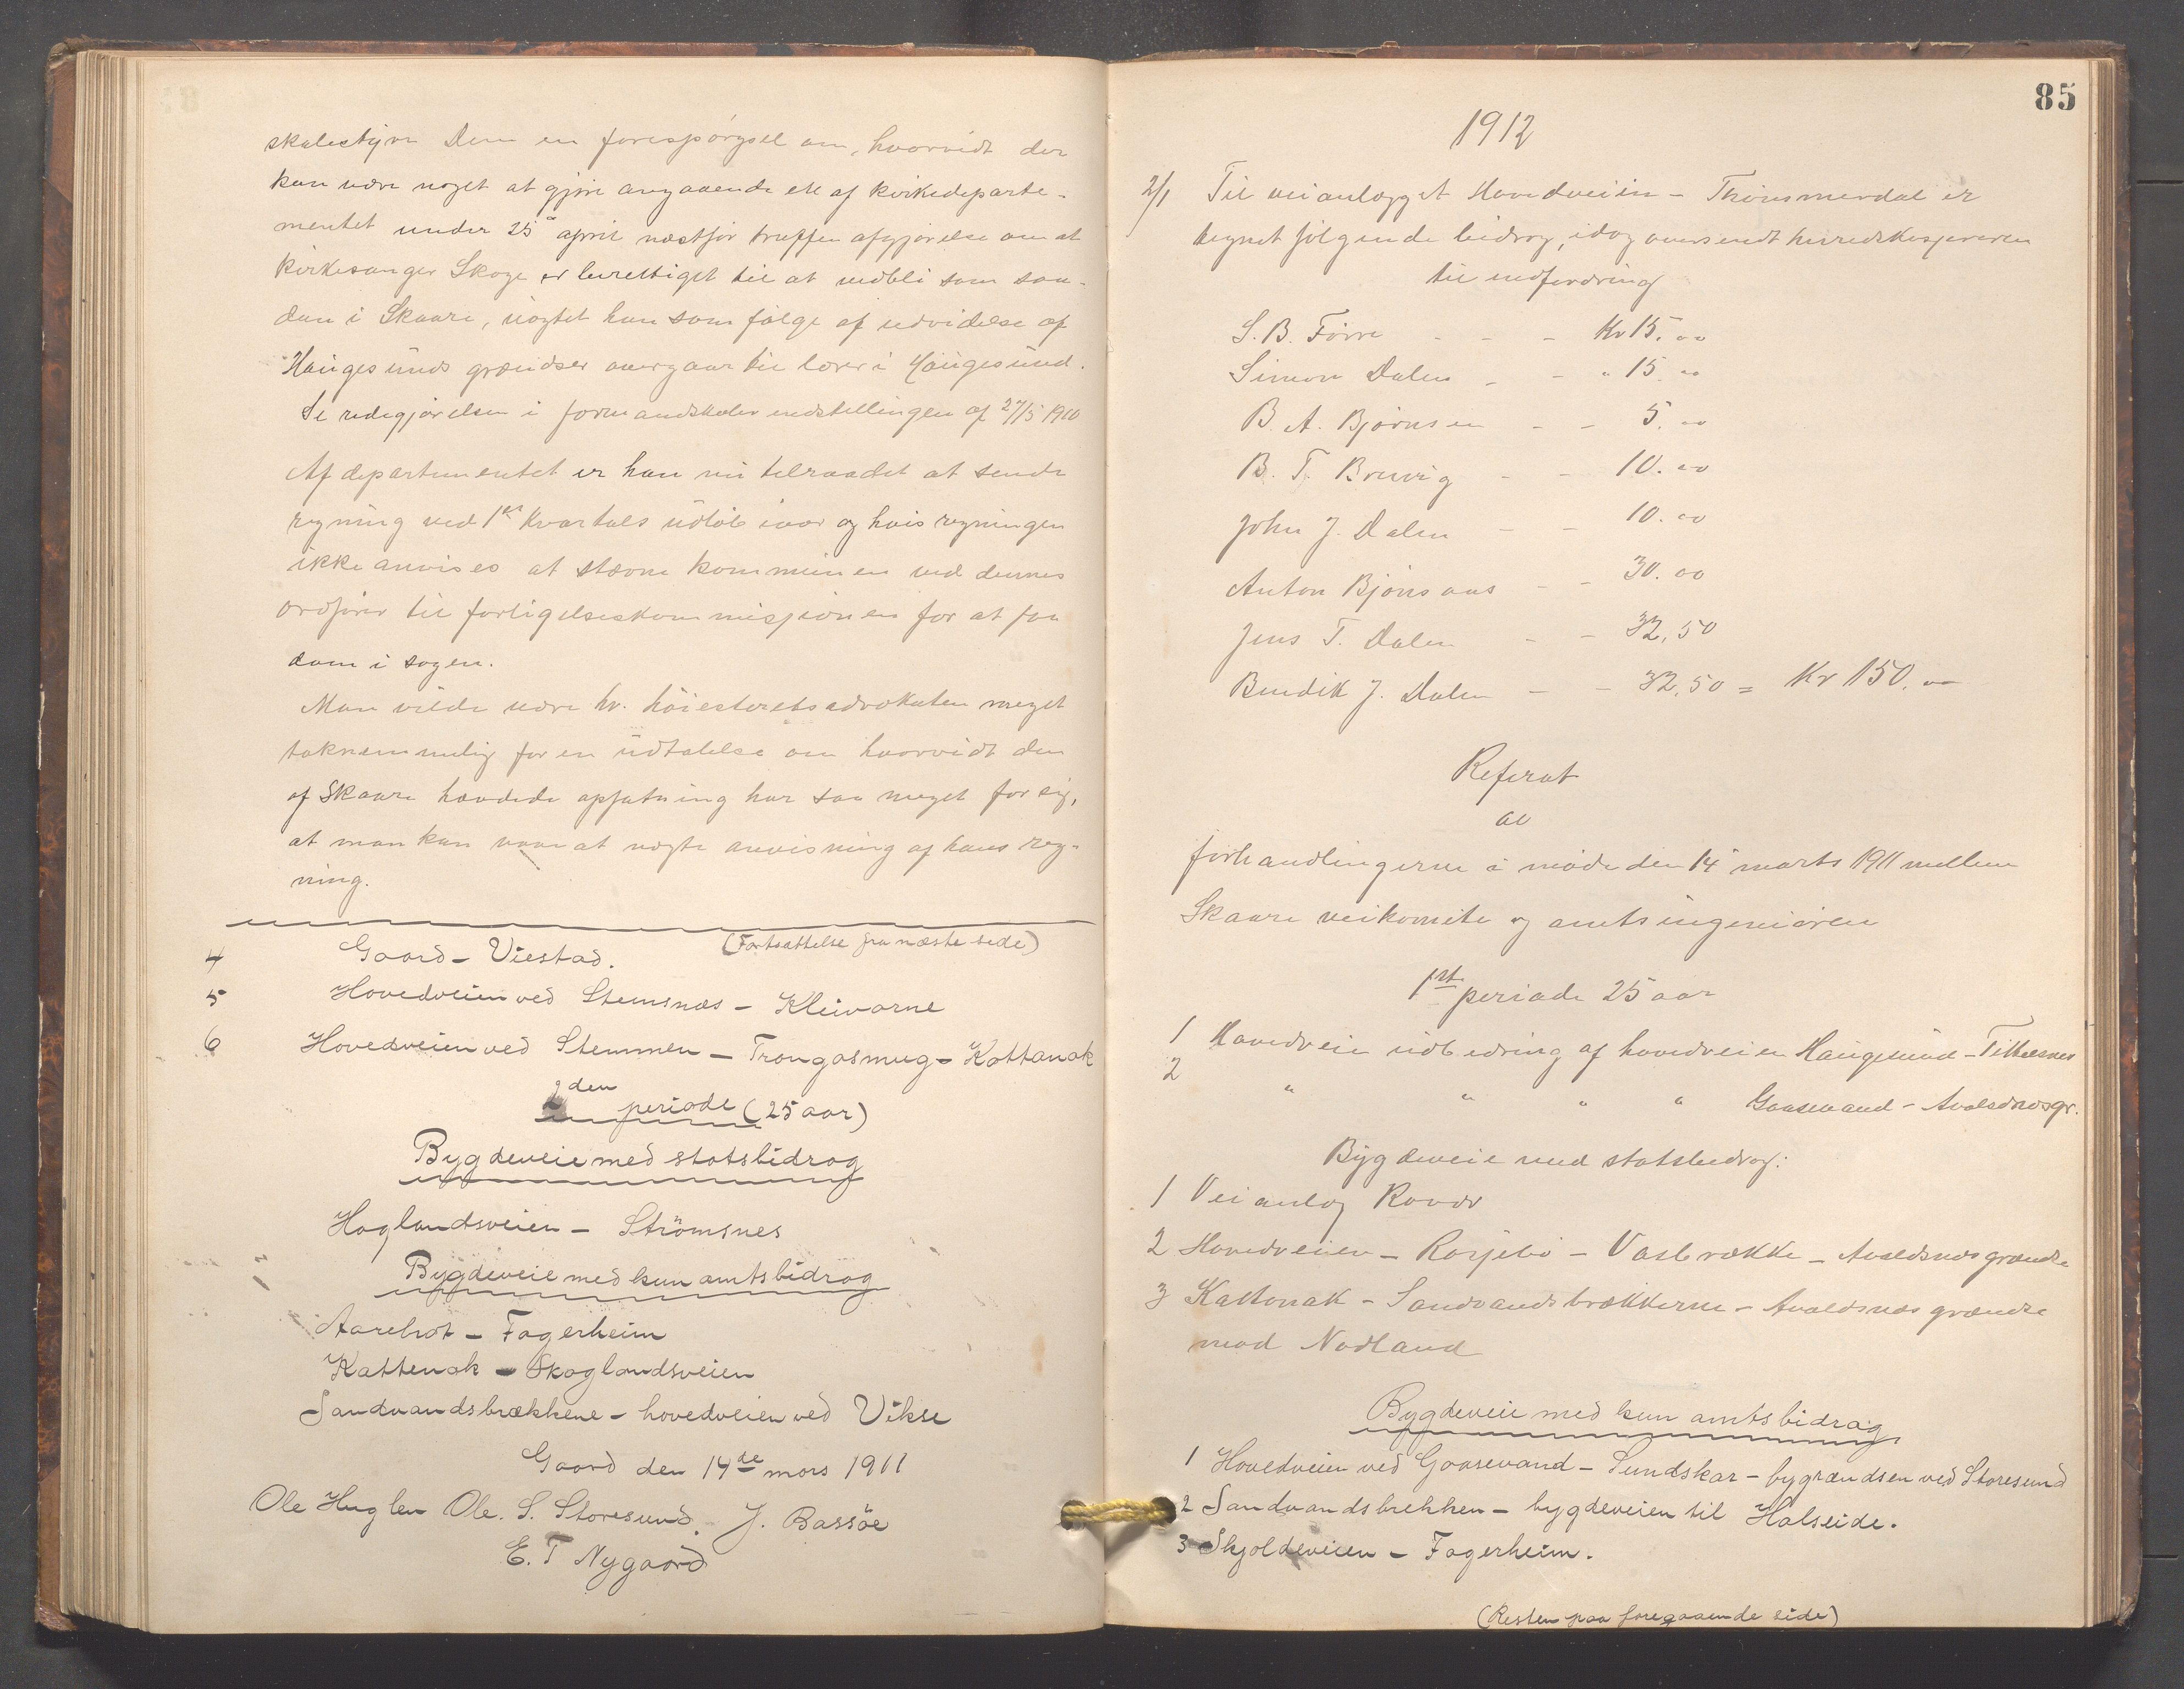 skolestyre Dem en forespørgsel om, hvorvidt der
kan være noget at gjøre angaaende en af kirkedeparte-
mentet under 25 april næstfør truffen afgjørelse om at
Kirkesanger Skoge er berettiget til at vedbli som saa-
dan i Skaare, uagtet han som følge af udvidelse af
Haugesunds grændser overgaar til lærer i Haugesund.
Se redegjørelsen i formandskabsindstillingen af 27/5 1910
Af departementet er han nu tilraadet at sende
regning ved 1st Kvartals udløb iaar og hvis regningen
ikke anvises at stævne kommunen ved dennes
ordfører til forligelseskommissionen for at faa
dom i sagen.
Man vilde være hr. høiesteretsadvokaten meget
taknemmelig for en udtalelse om hvorvidt den
af Skaare hævdede opfatning har saa meget for sig,
at man kan vove at nægte anvisning af hans reg-
ning.
(Fortsættelse fra næste side)
4 Gaard - Viestad.
5 Hovedveien ved Stemsnæs - Kleivarne
6 Hovedveien ved Stemmen - Trongasmug - Kattanak
2den periode (25 aar)
Bygdeveie med statsbidrag
Hoglandsveien - Strömsnes
Bygdeveie med kun amtsbidrag
Aarebrot - Fagerheim
Kattenak - Skoglandsveien
Sandvandsbrækkene - hovedveien ved Vikse
Gaard den 14de mars 1911
Ole Huglen Ole. S. Storesund. J. Bassöe
E. T Nygaard
85
1912
2/1 Til veianlægget Hovedveien - Trimsmerdal er
tegnet følgende bidrag, idag oversendt herredskassereren
til indfordring
S. B. Førre - - - Kr 15.00
Simon Dalen - - " 15.00
B. A. Bjørnsen - - 5.00
B. T. Bruvig - - 10.00
John J. Dalen - - 10.00
Anton Bjørsaas - - 30.00
Jens T. Dalen - - 32,50
Bendik J. Dalen - - 32,50 = Kr 150.00
Referat
av
forhandlingerne i møde den 14 marts 1911 mellem
Skaare veikomite og amtsingeniøren
1st periode 25 aar
1 Hovedveie udbedring af hovedveien Haugesund - Tittelsnes
2 " " " " Gaasevand - Avaldsnesgr.
Bygdeveie med statsbidrag:
1 Veianlæg Røvær
2 Hovedveien - Rosjebø - Vasbrække - Avaldsnes grændse
3 Kattanak - Sandvandsbrækkerne - Avaldsnes grændse
mod Nodland
Bygdeveie med kun amtsbidrag
1 Hovedveien ved Gaasevand - Sundskar - bygrændsen ved Storesund
2 Sandvandsbrekken - bygdeveien til Halseide.
3 Skjoldeveien - Fagerheim.
(Resten paa foregaaende side)